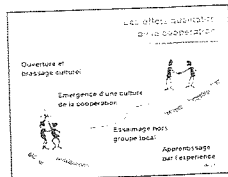 Les effets qualitatifs
de la coopération
Ouverture et
brassage culturel
Emergence d'une culture
de la coopération
Essaimage hors
groupe local
Apprentissage
par l'expérience